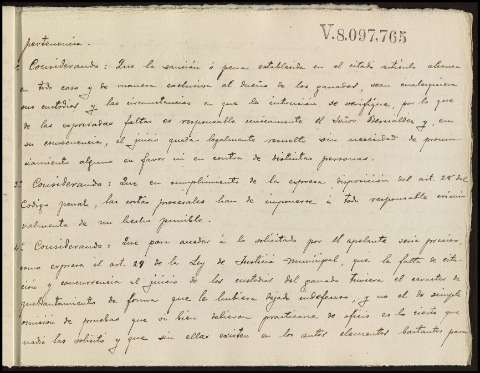 V.8.097,765
pertenencia.
Considerando: Que la sanción ó pena establecida en el citado artículo alcanza
en todo caso y de manera exclusiva al dueño de los ganados, sean cualesquiera
sus custodios y las circunstancias en que la intrusión se verifique, por lo que
de las expresadas faltas es responsable únicamente el Señor y, en
su consecuencia, el juicio queda legalmente resuelto sin necesidad de pronun-
ciamiento alguno en favor ni en contra de distintas personas.
3º Considerando: Que en cumplimiento de la expresa disposición del art. 28 del
Codigo penal, las costas procesales han de imponerse á todo responsable crimi-
nalmente de un hecho punible.
4º Considerando: Que para acceder á lo solicitado por el apelante sería preciso,
como expresa el art. 29 de la Ley de Justicia Municipal, que la falta de cita-
ción y concurrencia al juicio de los custodios del ganado tuviera el caracter de
quebrantamiento de forma que le hubiera dejado indefenso, y no el de simple
omisión de pruebas que si bien debieron practicarse de oficio es lo cierto que
nadie las solicitó y que sin ellas existen en los autos elementos bastantes para